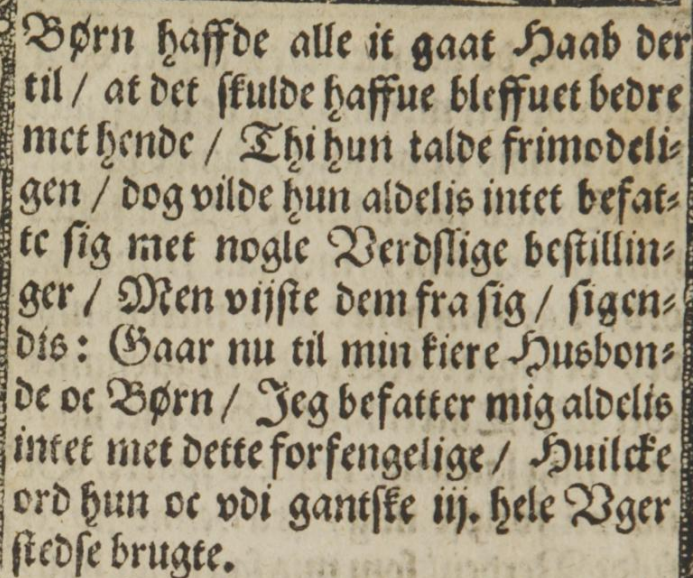 Børn haffde alle it gaat Haab der
til / at det skulde haffue bleffuet bedre
met hende / Thi hun talde frimodeli⸗
gen / dog vilde hun aldelis intet befat⸗
te sig met nogle Verdslige bestillin⸗
ger / Men vijste dem fra sig / sigen⸗
dis: Gaar nu til min kiere Husbon⸗
de oc Børn / Jeg befatter mig aldelis
intet met dette forfengelige / Huilcke
ord hun oc vdi gantske iij. hele Vger
stedse brugte.